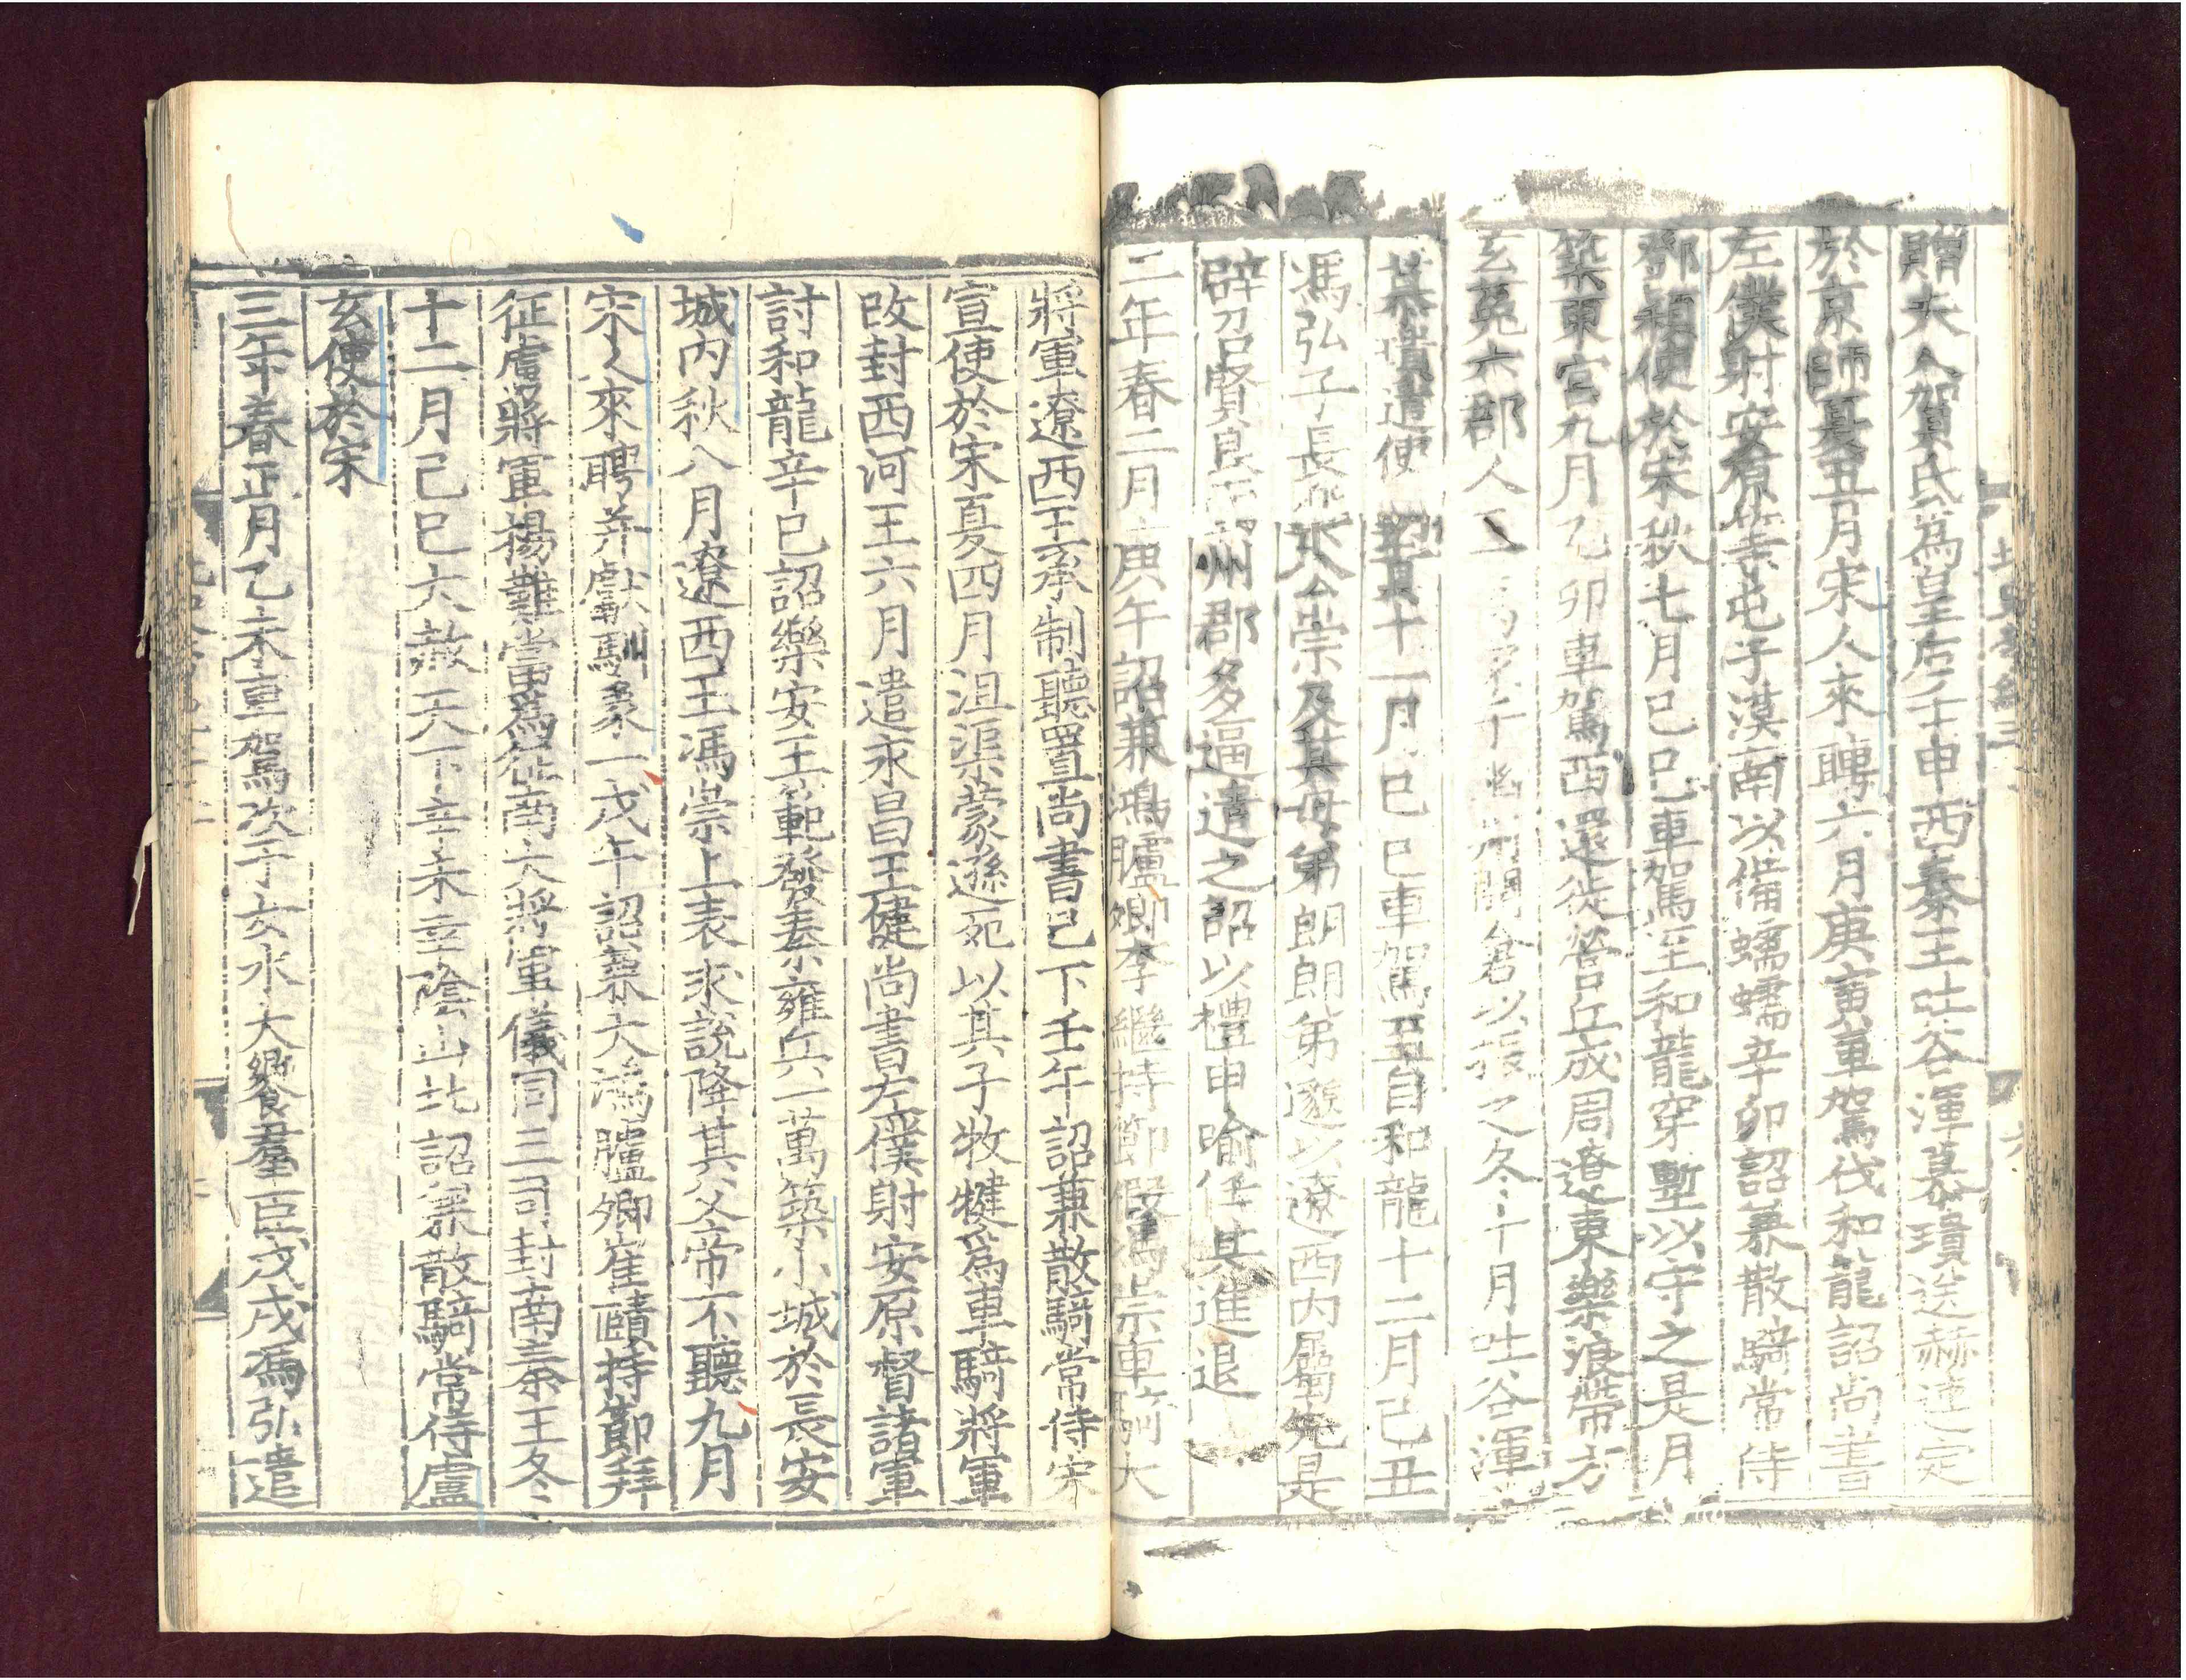 贈夫人賀氏爲皇后壬申西秦王吐谷渾慕璝送赫連定
於京師夏五月宋人來聘六月庚寅車駕伐和龍詔尚書
左僕射安原等屯于漠南以備蠕蠕辛卯詔兼散騎常侍
鄧穎使於宋秋七月己巳車駕至和龍穿塹以守之是月
築東宮九月乙卯車駕西還徙營丘成周遼東樂浪帶方
玄菟六郡人三萬家于幽州開倉以振之冬十月吐谷渾
慕璝遣使朝貢十一月己巳車駕至自和龍十二月己丑
馮弘子長樂公崇及其母弟朗朗弟邈以遼西內屬先是
辟召賢良而州郡多逼遣之詔以禮申喻任其進退
二年春二月庚午詔兼鴻臚卿李繼持節假馮崇車騎大
將軍遼西王承制聽置尚書已下壬午詔兼散騎常侍宋
宣使於宋夏四月沮渠蒙遜死以其子牧犍爲車騎將軍
改封西河王六月遣永昌王健尚書左僕射安原督諸軍
討和龍辛巳詔樂安王範發秦雍兵一萬築小城於長安
城內秋八月遼西王馮崇上表求說降其父帝不聽九月
宋人來聘并獻馴象一戊午詔兼大鴻臚卿崔賾持節拜
征虜將軍楊難當爲征南大將軍儀同三司封南秦王冬
十二月己巳大赦天下辛未幸陰山北詔兼散騎常侍盧
玄使於宋
三年春正月乙未車駕次于女水大饗羣臣戊戌馮弘遣